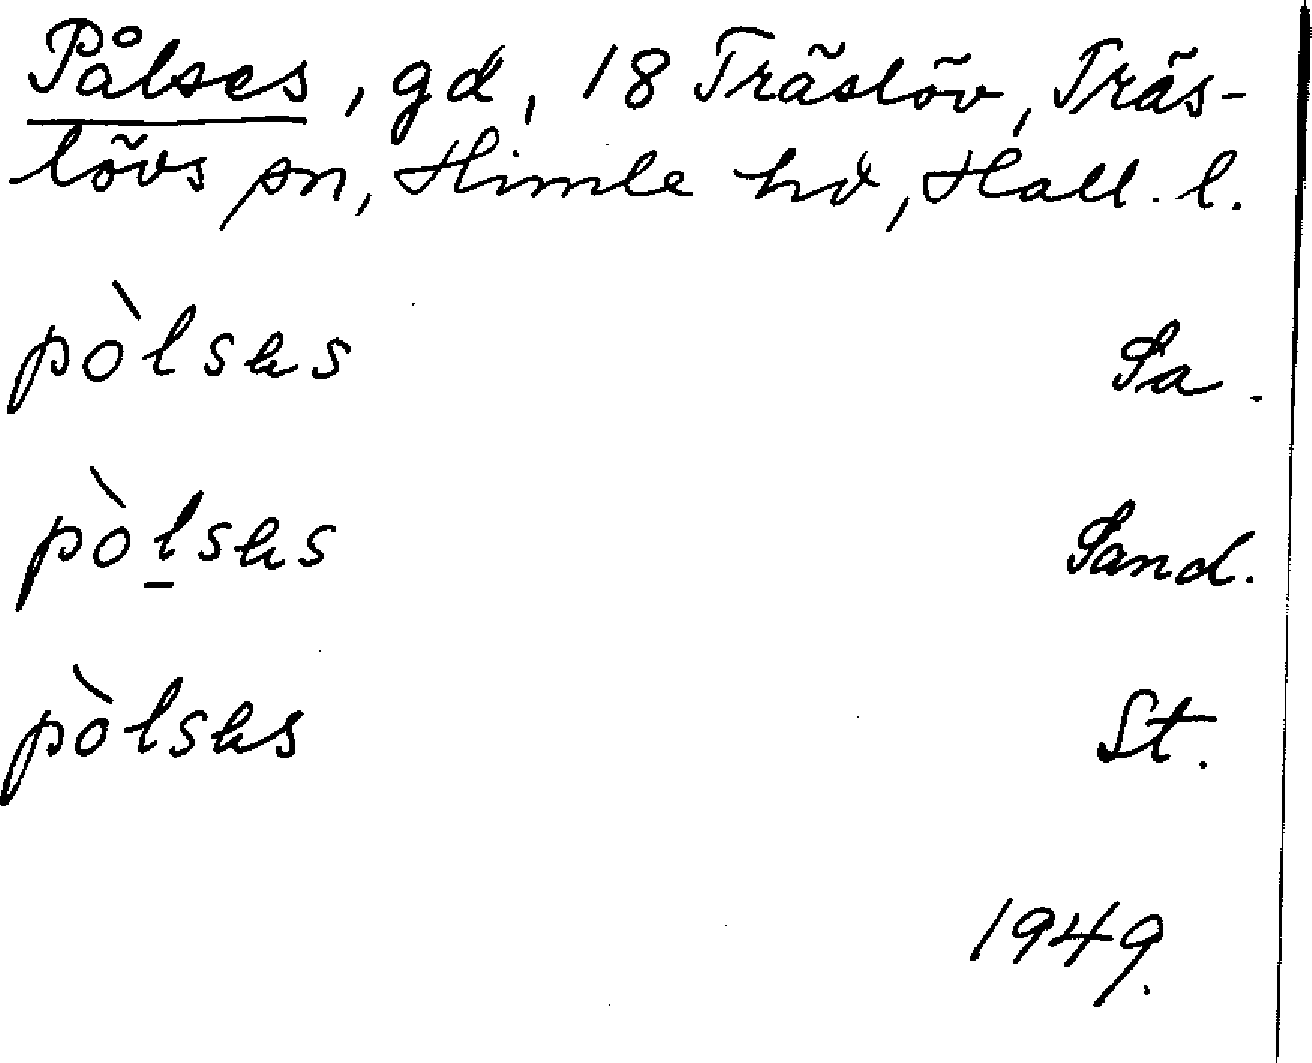 Pålses, gd, 18 Träslöv, Träs-
lövs sn, Himle hd, Hall. l.
pòlsəs Sa.
pòl̲səs Sand.
pòlsəs St.
1949.